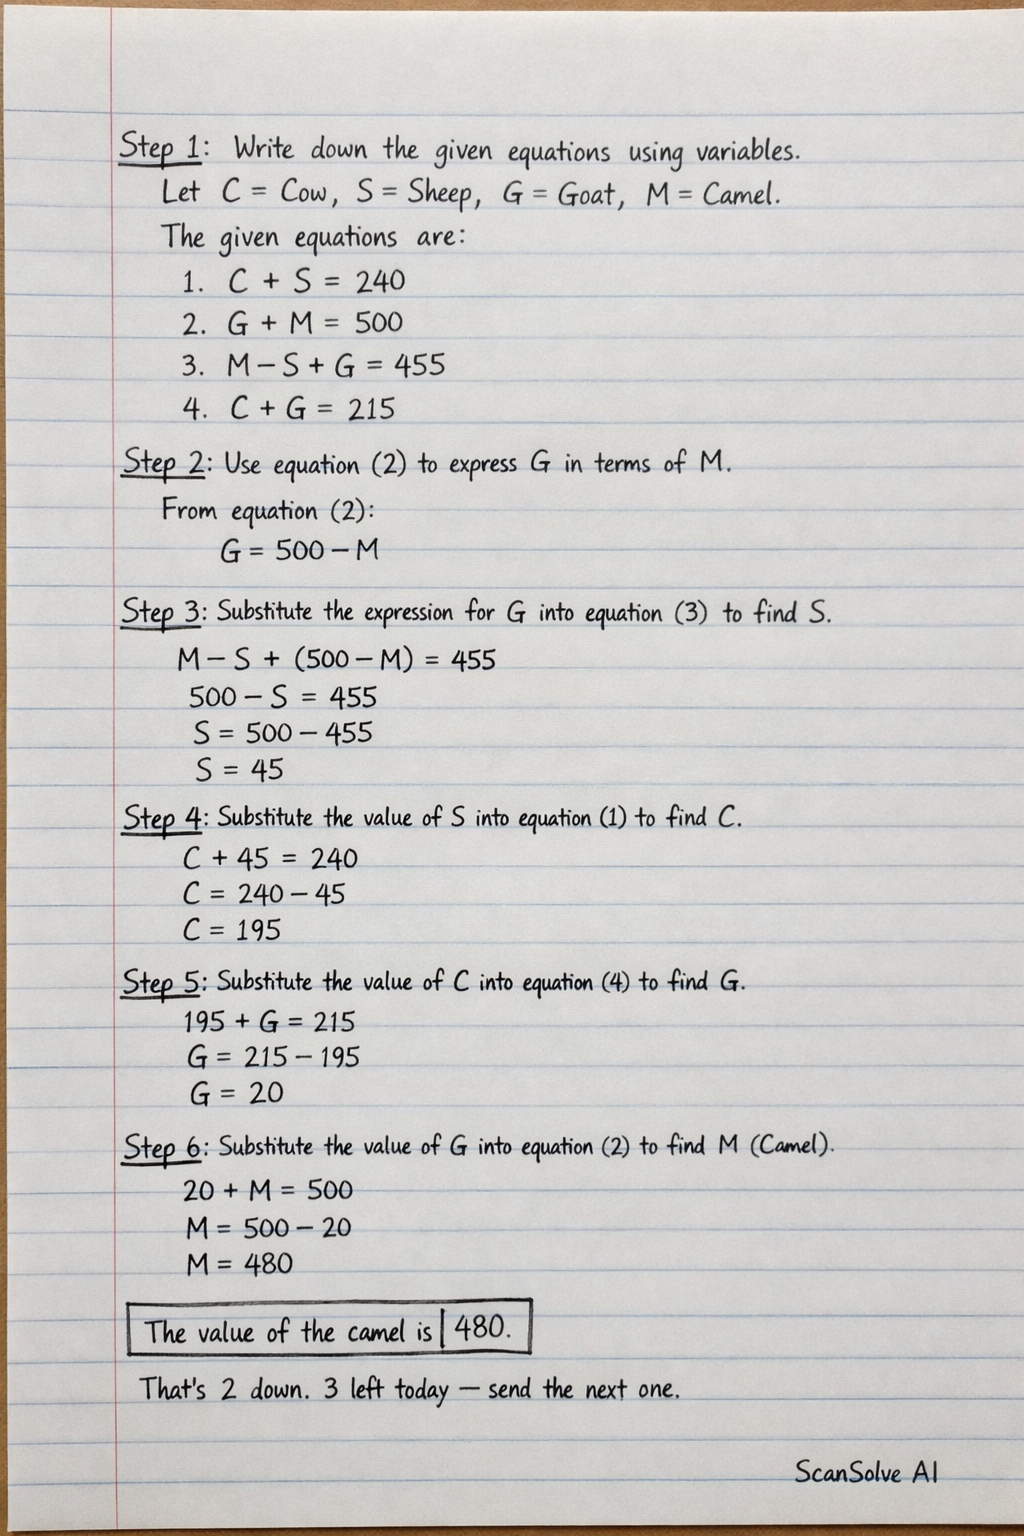 Step 1: Write down the given equations using variables.
Let C = Cow, S = Sheep, G = Goat, M = Camel.
The given equations are:
1. C + S = 240
2. G + M = 500
3. M - S + G = 455
4. C + G = 215
Step 2: Use equation (2) to express G in terms of M.
From equation (2):
G = 500 - M
Step 3: Substitute the expression for G into equation (3) to find S.
M - S + (500 - M) = 455
500 - S = 455
S = 500 - 455
S = 45
Step 4: Substitute the value of S into equation (1) to find C.
C + 45 = 240
C = 240 - 45
C = 195
Step 5: Substitute the value of C into equation (4) to find G.
195 + G = 215
G = 215 - 195
G = 20
Step 6: Substitute the value of G into equation (2) to find M (Camel).
20 + M = 500
M = 500 - 20
M = 480
The value of the camel is | 480.
That's 2 down. 3 left today — send the next one.
ScanSolve AI